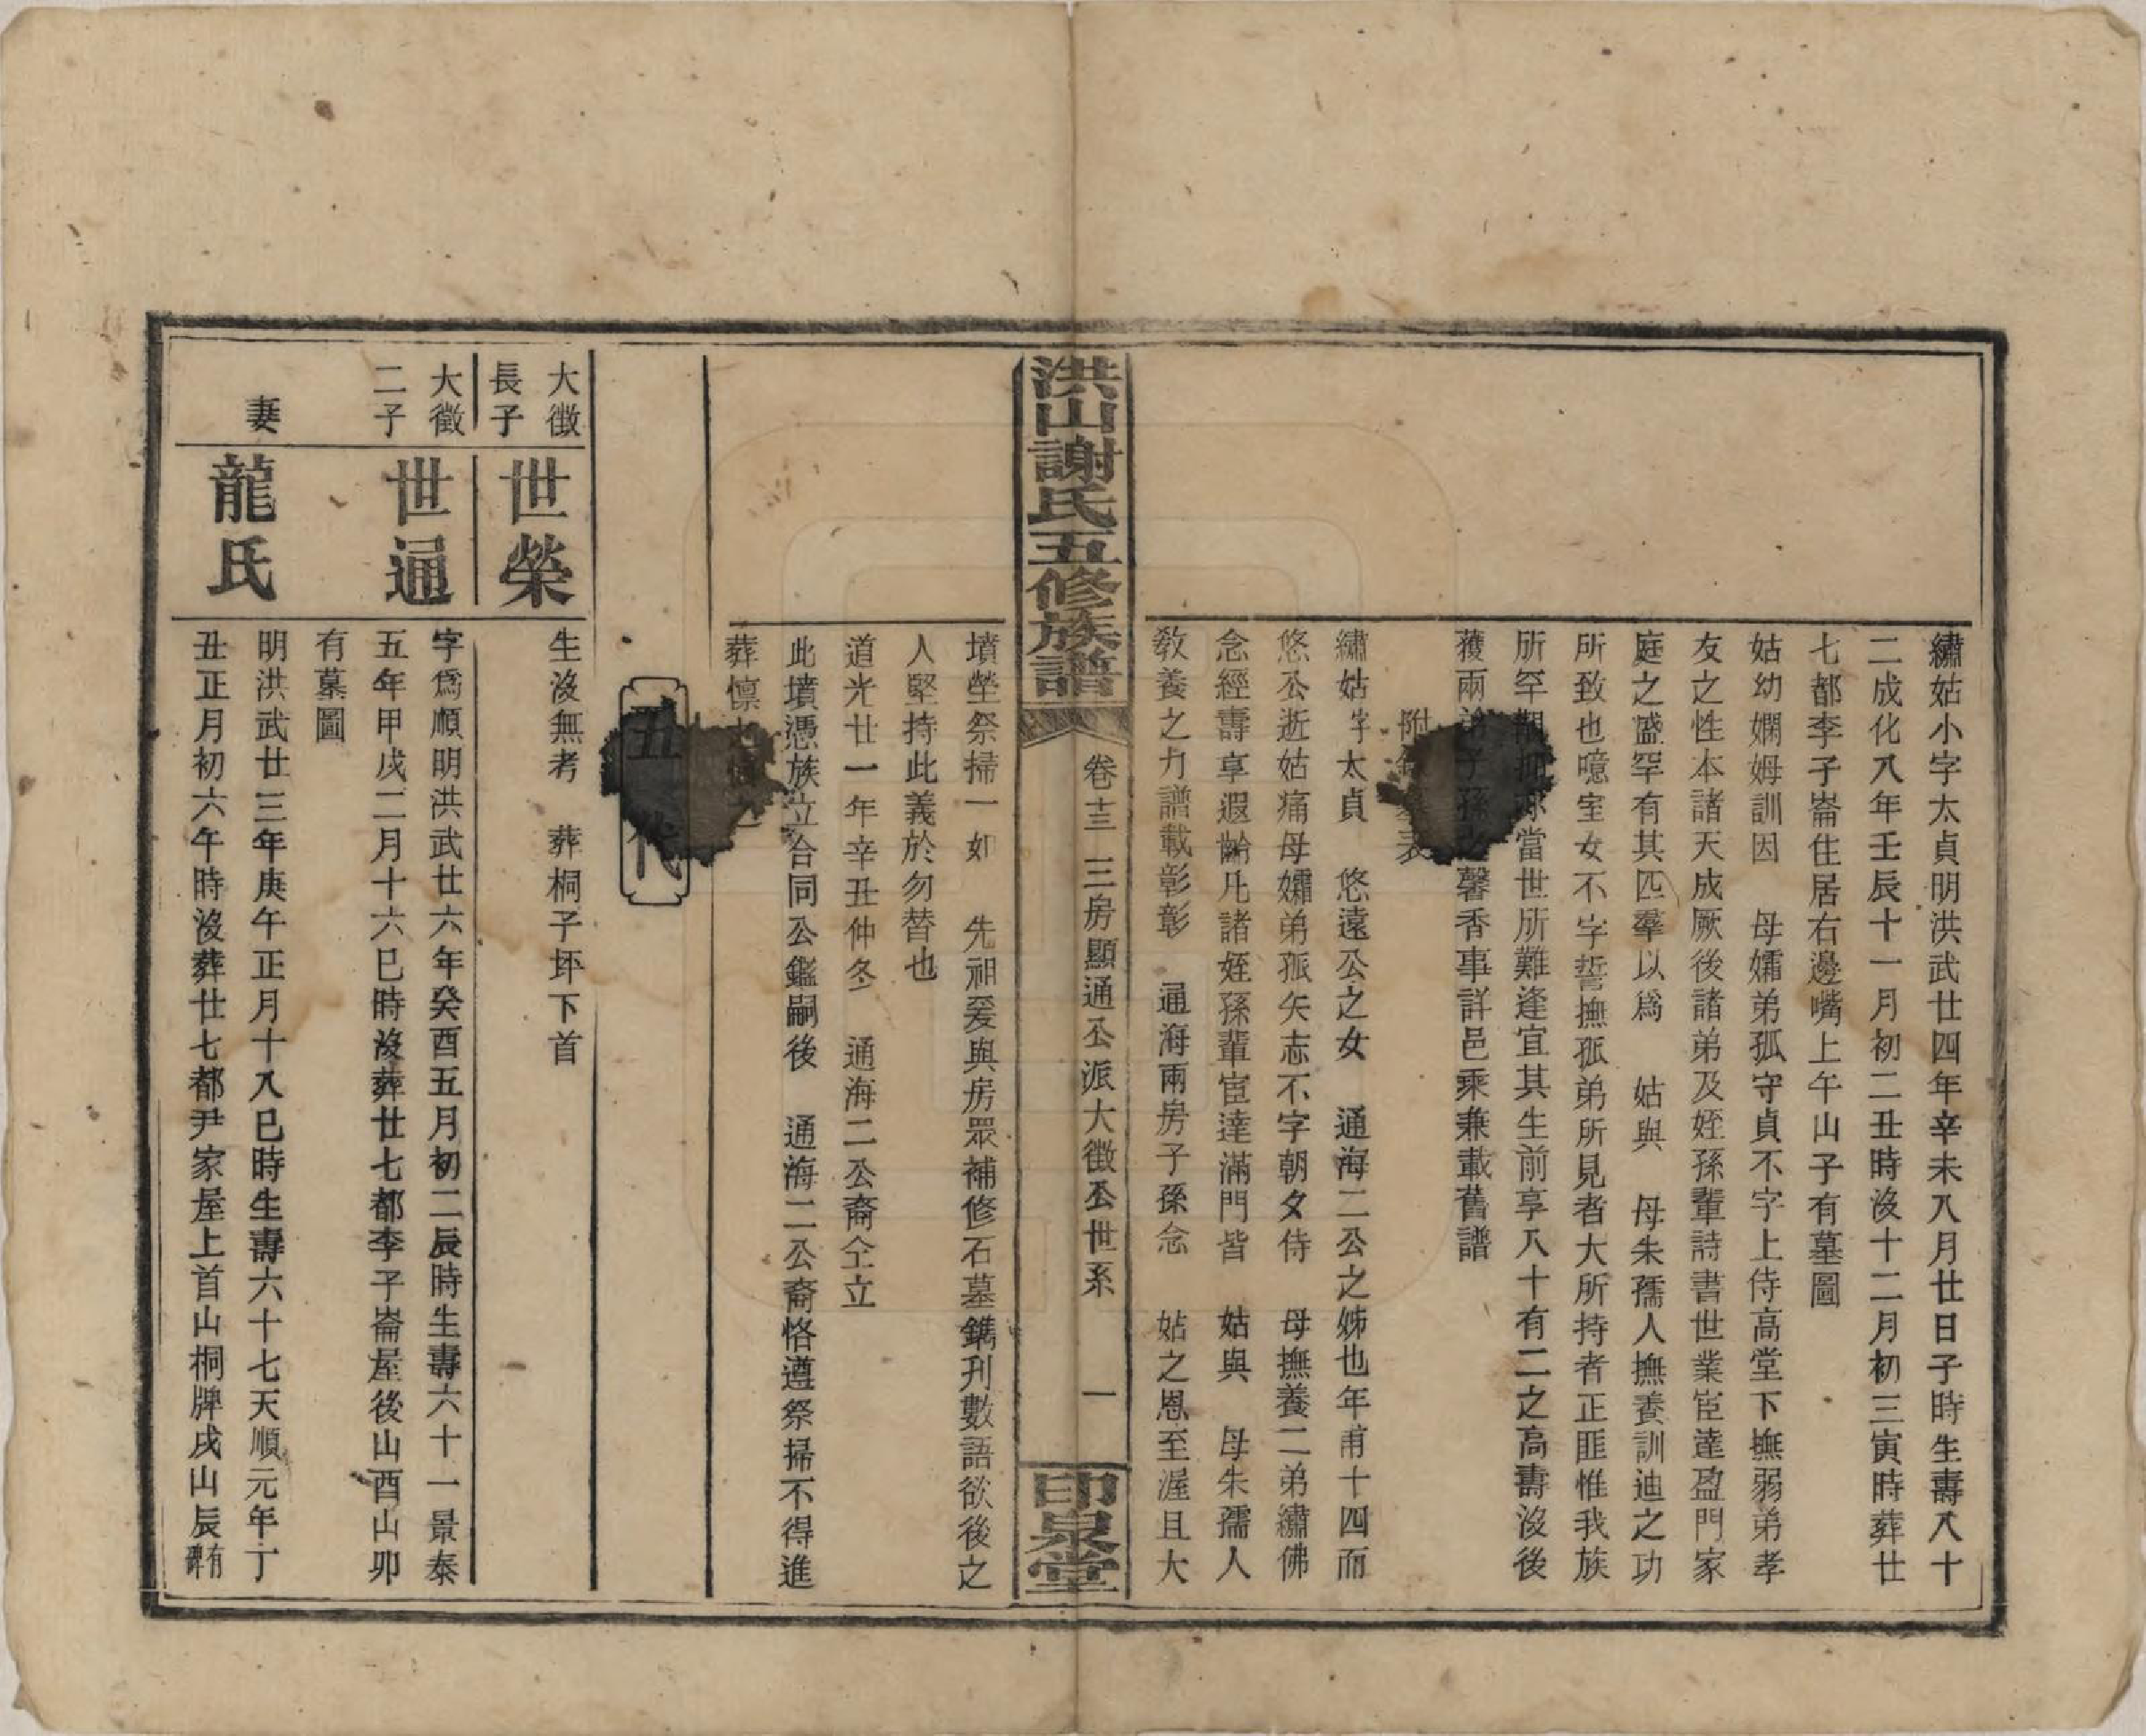 繡姑小字太貞明洪武廿四年辛未八月廿日子時生壽八十
二成化八年壬辰十一月初二丑時沒十二月初三寅時葬廿
七都李子崙住居右邊嘴上午山子有墓圖
姑幼嫻姆訓因 母孀弟孤守貞不字上侍高堂下撫弱弟孝
友之性本諸天成厥後諸弟及姪孫輩詩書世業宦達盈門家
庭之盛罕有其匹羣以爲 姑與 母朱孺人撫養訓迪之功
所致也噫室女不字誓撫孤弟所見者大所持者正匪惟我族
所罕觀抑亦當世所難逢宜其生前享八十有二之高壽沒後
獲兩 子孫 馨香事詳邑乘兼載舊譜
附 表
繡姑字太貞 悠遠公之女 通海二公之姊也年甫十四而
悠公逝姑痛母孀弟孤矢志不字朝夕侍 母撫養二弟繡佛
念經壽享遐齡凡諸姪孫輩宦達滿門皆 姑與 母朱孺人
敎養之力譜載彰彰 通海兩房子孫念 姑之恩至渥且大
洪山謝氏五修族譜 卷十三 三房顯通公派大徵公世系 一 印泉堂
墳塋祭掃一如 先祖爰與房眾補修石墓鐫刊數語欲後之
人堅持此義於勿替也
道光廿一年辛丑仲冬 通海二公裔仝立
此墳憑族立合同公鑑嗣後 通海二公裔恪遵祭掃不得進
葬懍
五代
大徵長子 世榮 生沒無考 葬桐子坏下首
大徵二子 世通 字爲順明洪武廿六年癸酉五月初二辰時生壽六十一景泰
五年甲戌二月十六巳時沒葬廿七都李子崙屋後山酉山卯
有墓圖
妻 龍氏 明洪武廿三年庚午正月十八巳時生壽六十七天順元年丁
丑正月初六午時沒葬廿七都尹家屋上首山桐牌戌山辰有碑